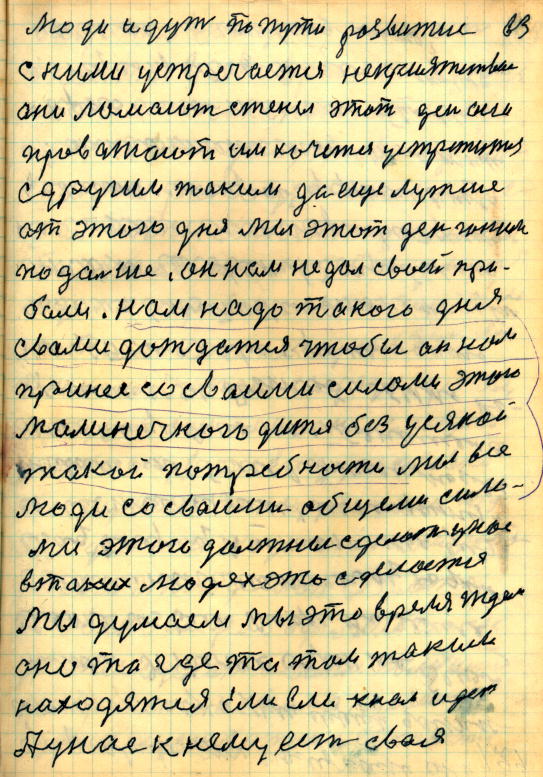 люди идут по пути развитие 83
с ними устречается неприятства
они ломают стены этот ден они
проважают им хочется устретится
с другим таким да еще лутше
от этого дня мы этот ден гоним
подальше, он нам не дал своей при-
бали. нам надо такого дня
с вами дождатся чтобы он нам
принес со сваими силами этого
малинечкого дитя без усякой
такой потребности мы все
люди со сваими общеми сила-
ми этого должны сделат у нас
в таких людях это сделается
мы думаем мы это время ждем
оно та где та там таким
находятся ели ели к нам идет
А у нас к нему ест своя